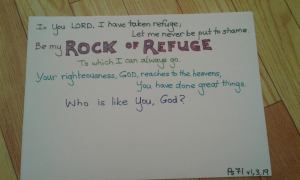 In You LORD, I have taken refuge,
Let me never be put to shame.
Be my ROCK OF REFUGE
To which I can always go.
Your righteousness, GOD, reaches to the heavens,
You have done great things.
Who is like You, God?
Ps 71 v1,3,19